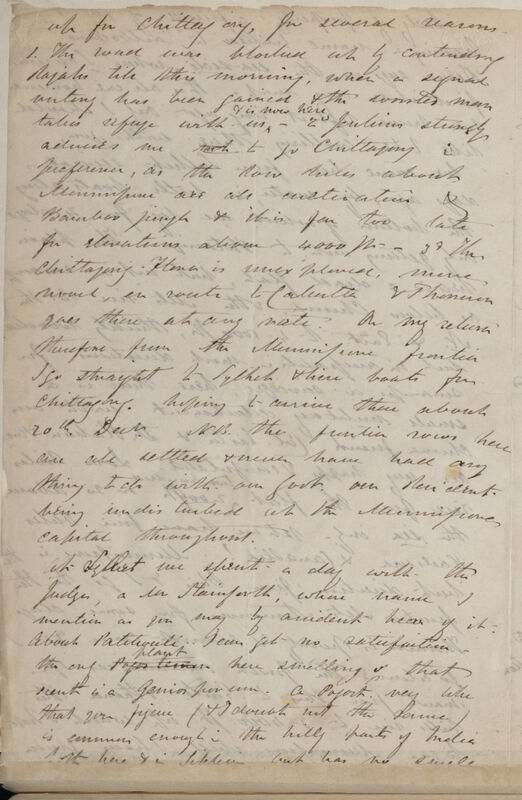 up for Chittagong, for several reasons.
1. The road was blocked up by contending
Rajahs till this morning, when a signal
victory has been gained & the worsted man
& is now here
takes refuge with us, – 2d Jenkins strongly
advises me not to go Chittagong in
preference, as the low hills about
Munnipore are all cultivation &
Bamboo jungle & it is far too late
for elevations above 4000 ft – 3d The
Chittagong Flora is unexplored, more
novel en route to Calcutta & Thomson
goes there at any rate. On my return
therefore from the Munnipore frontier
I go straight to Sylhet & hire boats for
Chittagong. hoping to arrive there about
20th Decr. N.B. the frontier rows here
are all settled & never have had any
thing to do with our Govt. our Resident
being undisturbed at the Munnipore
capital throughout.
At Sylhet we spent a day with the
Judge, a Mr Stainforth, whose name I
mention as you may by accident hear of it.
About Patchouli, I can get no satisfaction
plant
the only here smelling of that
scent is a . a Pogost. very like
that you figure (& I doubt not the same)
is common enough in the hilly parts of India
both here & in Sikkim but has no smell